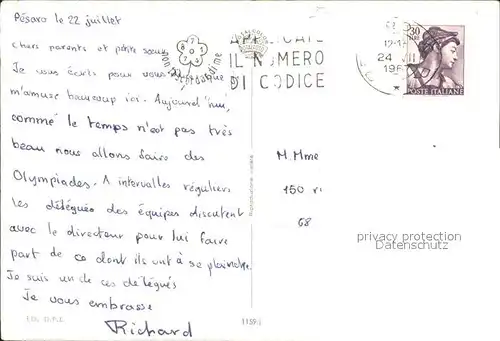 Pésaro le 22 juillet
chers parents et petite sœur
Je vous écris pour vous que
m'amuse beaucoup ici. Aujourd'hui,
comme le temps n'est pas très
beau nous allons faire des
Olympiades. A intervalles réguliers
les délégués des équipes discutent
avec le directeur pour lui faire
part de ce dont ils ont à se plaindre.
Je suis un de ces délégués
Je vous embrasse
Richard
IL NUMERO
DI CODICE
non di me
24
196
30
POSTE ITALIANE
M. Mme
150 r
68
privacy protection
Datenschutz